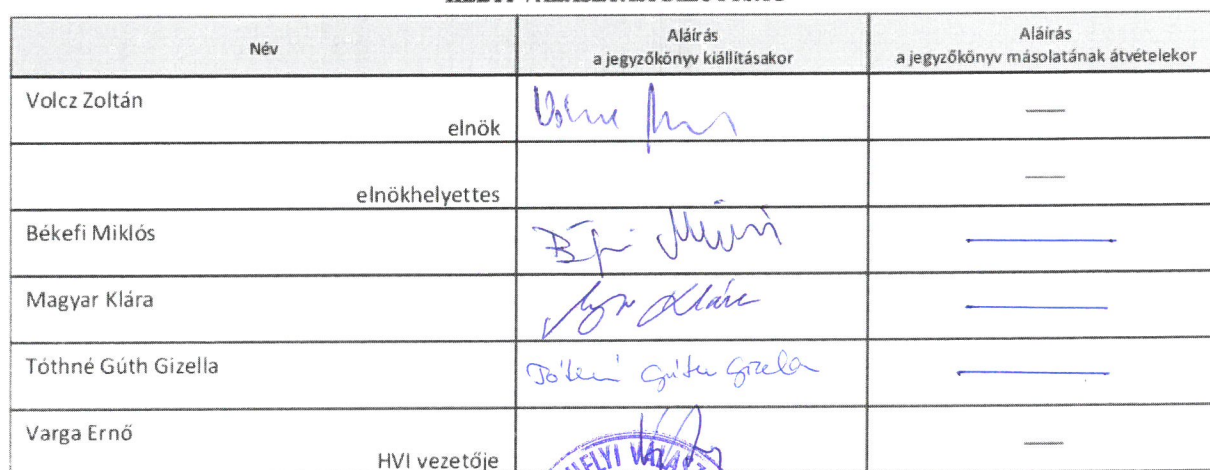 Név
Aláírás
a jegyzőkönyv kiállításakor
Aláírás
a jegyzőkönyv másolatának átvételekor
Volcz Zoltán
elnök
elnökhelyettes
Békefi Miklós
Magyar Klára
Klára
Tóthné Gúth Gizella
Tóthné Gúth Gizella
Varga Ernő
HVI vezetője
HELYI VÁLASZ